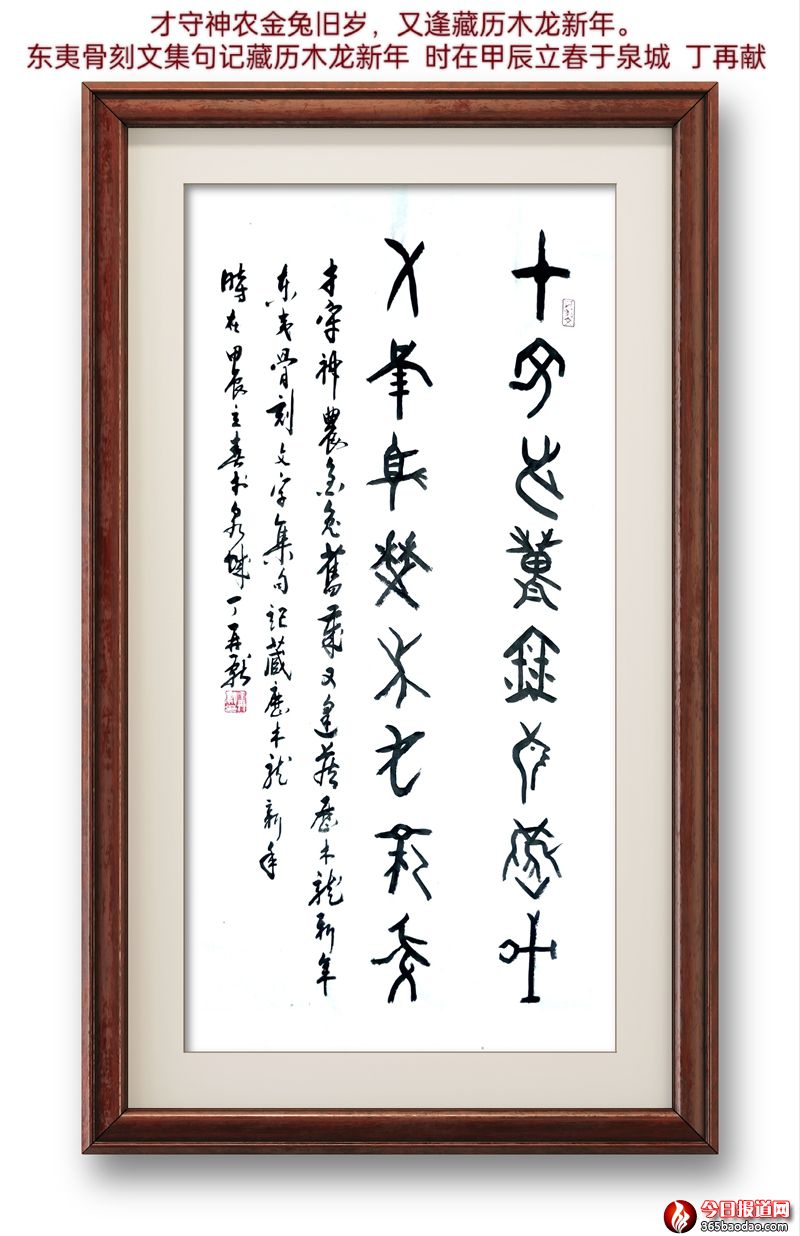 才守神农金兔旧岁，又逢藏历木龙新年。
东夷骨刻文集句记藏历木龙新年 时在甲辰立春于泉城 丁再献
才守神農金兔舊歲
又逢藏曆木龍新年
才守神農金兔舊歲又逢藏歷木龍新年
东夷骨刻文字集句記藏歷木龙新年
時在甲辰立春于泉城丁再献
今日报道网
365baodao.com